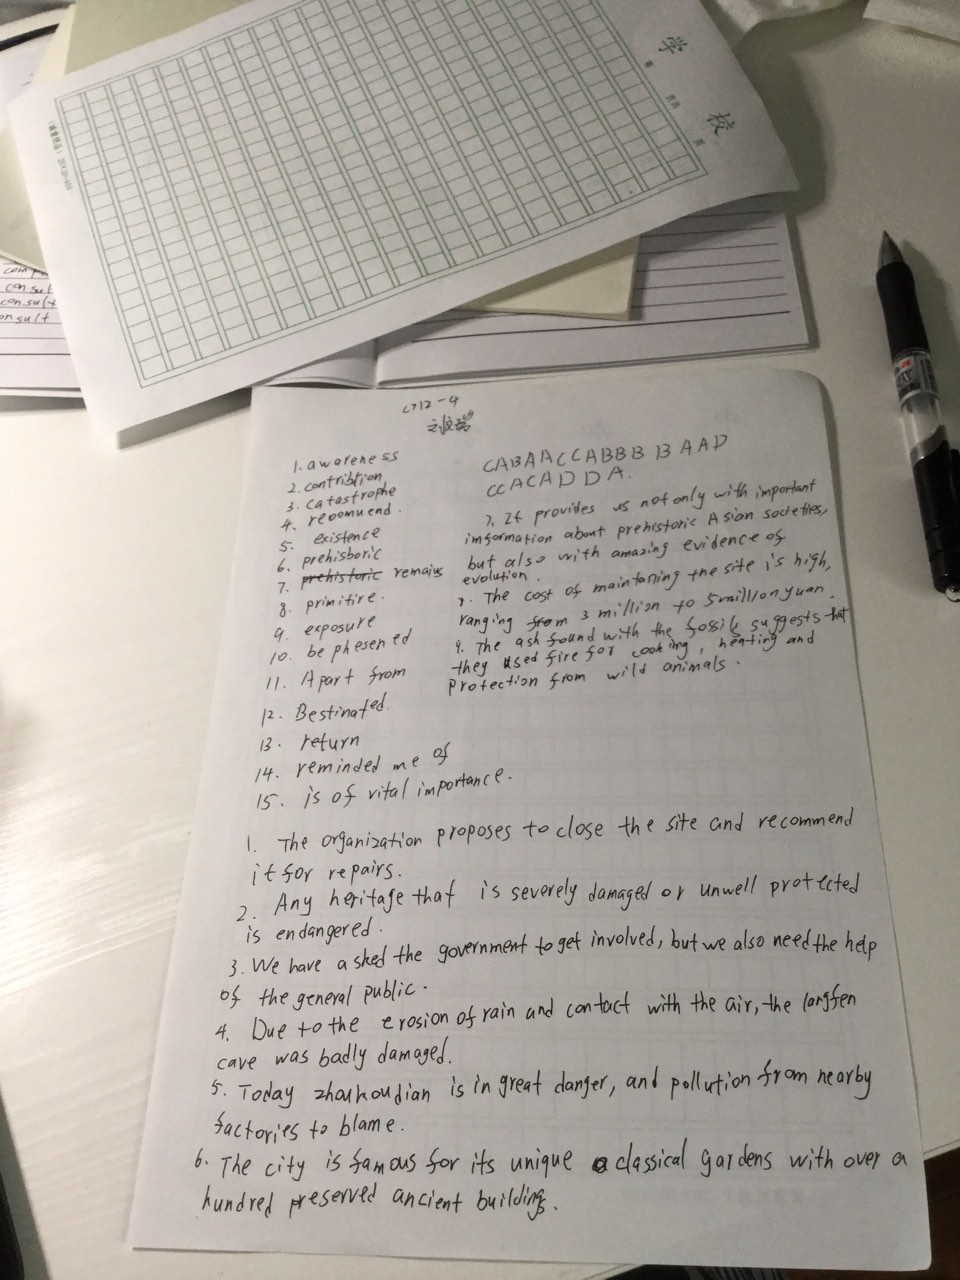 学
校
comp
consult
consult
onsult
L712-4
1. awareness
2. contribtion
3. catastrophe
4. reoomuend.
5. existence
6. prehisboric
7. prehistoric remains
8. primitire.
9. exposure
10. be phesented
11. Apart from
12. Bestinated.
13. return
14. reminded me of
15. is of vital importance.
CABAACCABBB BAAD
CCACADDA.
7. It provides us not only with important
imformation about prehistoric Asian societies,
but also with amazing evidence of
evolution.
8. The cost of maintaning the site is high,
ranging from 3 million to 5 million yuan.
9. The ash found with the fossils suggests that
they used fire for cooking, heating and
protection from wild animals.
1. The organization proposes to close the site and recommend
it for repairs.
2. Any heritage that is severely damaged or unwell protected
is endangered.
3. We have asked the government to get involved, but we also need the help
of the general public.
4. Due to the erosion of rain and contact with the air, the langfen
cave was badly damaged.
5. Today zhoukoudian is in great danger, and pollution from nearby
factories to blame.
6. The city is famous for its unique classical gardens with over a
hundred preserved ancient buildings.